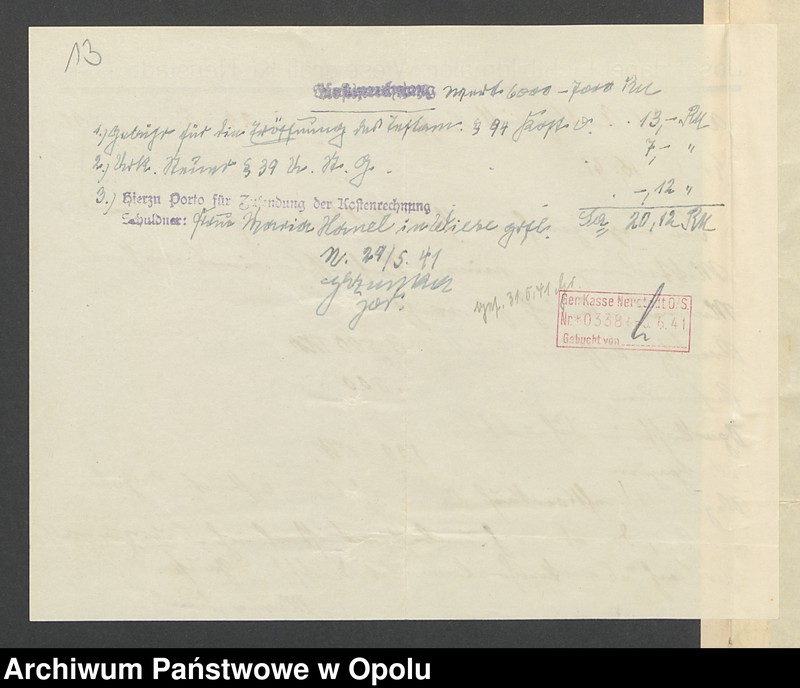 13
Kostenrechnung Wert 6000 – 7000 RM
1.) Gebühr für die Eröffnung des Testam. § 94 Kost. O. . . 13,– RM
2.) Urk. Steuer § 39 U. St. G. . . 7,– "
3.) Hierzu Porto für Zusendung der Kostenrechnung . –,12 "
Schuldner: Frau Maria Hanel in Wiese grfl. Sa 20,12 RM
N. 29/5. 41
gef. 31.5.41
Ger. Kasse Neustadt O/S.
Nr * 0338 6.41
Gebucht von
Archiwum Państwowe w Opolu